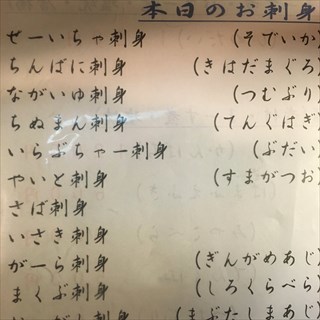 本日のお刺身
ぜーいちゃ刺身 (そでいか)
ちんばに刺身 (きはだまぐろ)
ながいゆ刺身 (つむぶり)
ちぬまん刺身 (てんぐはぎ)
いらぶちゃー刺身 (ぶだい)
やいと刺身 (すまがつお)
さば刺身
いさき刺身
がーら刺身 (ぎんがめあじ)
まくぶ刺身 (しろくらべら)
(まぶたしまあじ)